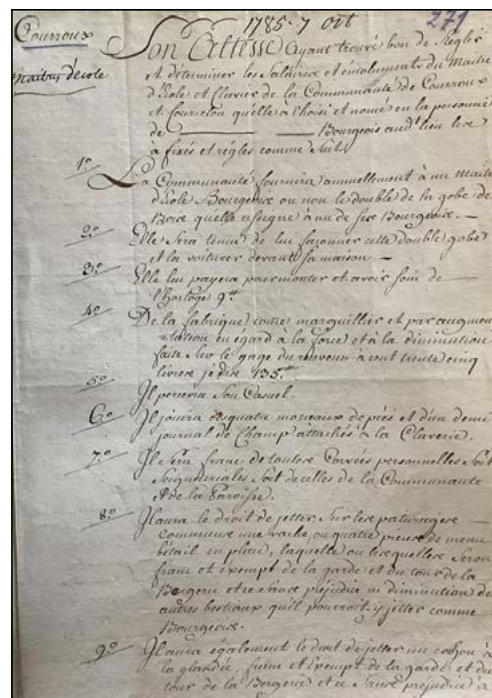 1785. 7 8bt
271
Courroux
Maitres d'école
Son Altesse ayant trouvé bon de Régler
et déterminer les Salaires et émoluments du Maitre
d'Ecole et Clavier de la Communauté de Courroux
et Courcelon qu'elle a Choisi et nomé en la personne
de Bourgeois audt lieu les
a fixés et réglés comme Suit:
1o
La Communauté fournira annuellement à un Maitre
d'Ecole Bourgeois ou non le double de la gobe de
Bois quelle assigne à un de ses Bourgeois. —
2o
Elle Sera tenue de lui façonner cette double gobe
et la voiturer devant sa maison —
3o
Elle lui payera pour monter et avoir soin de
l'horloge 9 tt
4o
De la fabrique comme marguillier et par augmen
tation eu egard à la et à la diminution
faite Sur le gage du à cent trente cinq
livres je dis 135 tt
5o
Il percevra Son Casuel.
6o
Il jouira des quatre morceaux de prés et d'un demi
journal de Champ attachés à la Claverie.
7o
Il Sera franc de toutes Corvées personnelles Soit
Seigneuriales Soit de celles de la Communauté
et de la Paroisse.
8o
Il aura le droit de jetter Sur les paturages
communs une vache, ou quatre pieces de menu
bétail en place, laquelle ou lesquelles Seront
franc et exempt de la garde et du tour de la
Bergerie et ce Sans préjudice ni diminution des
autres bestiaux qu'il pourroit y jetter comme
Bourgeois.
9o
Il aura également le droit de jetter un cochon à
la glandée, franc et Exempt de la garde et du
tour de la Bergerie et ce Sans préjudice à